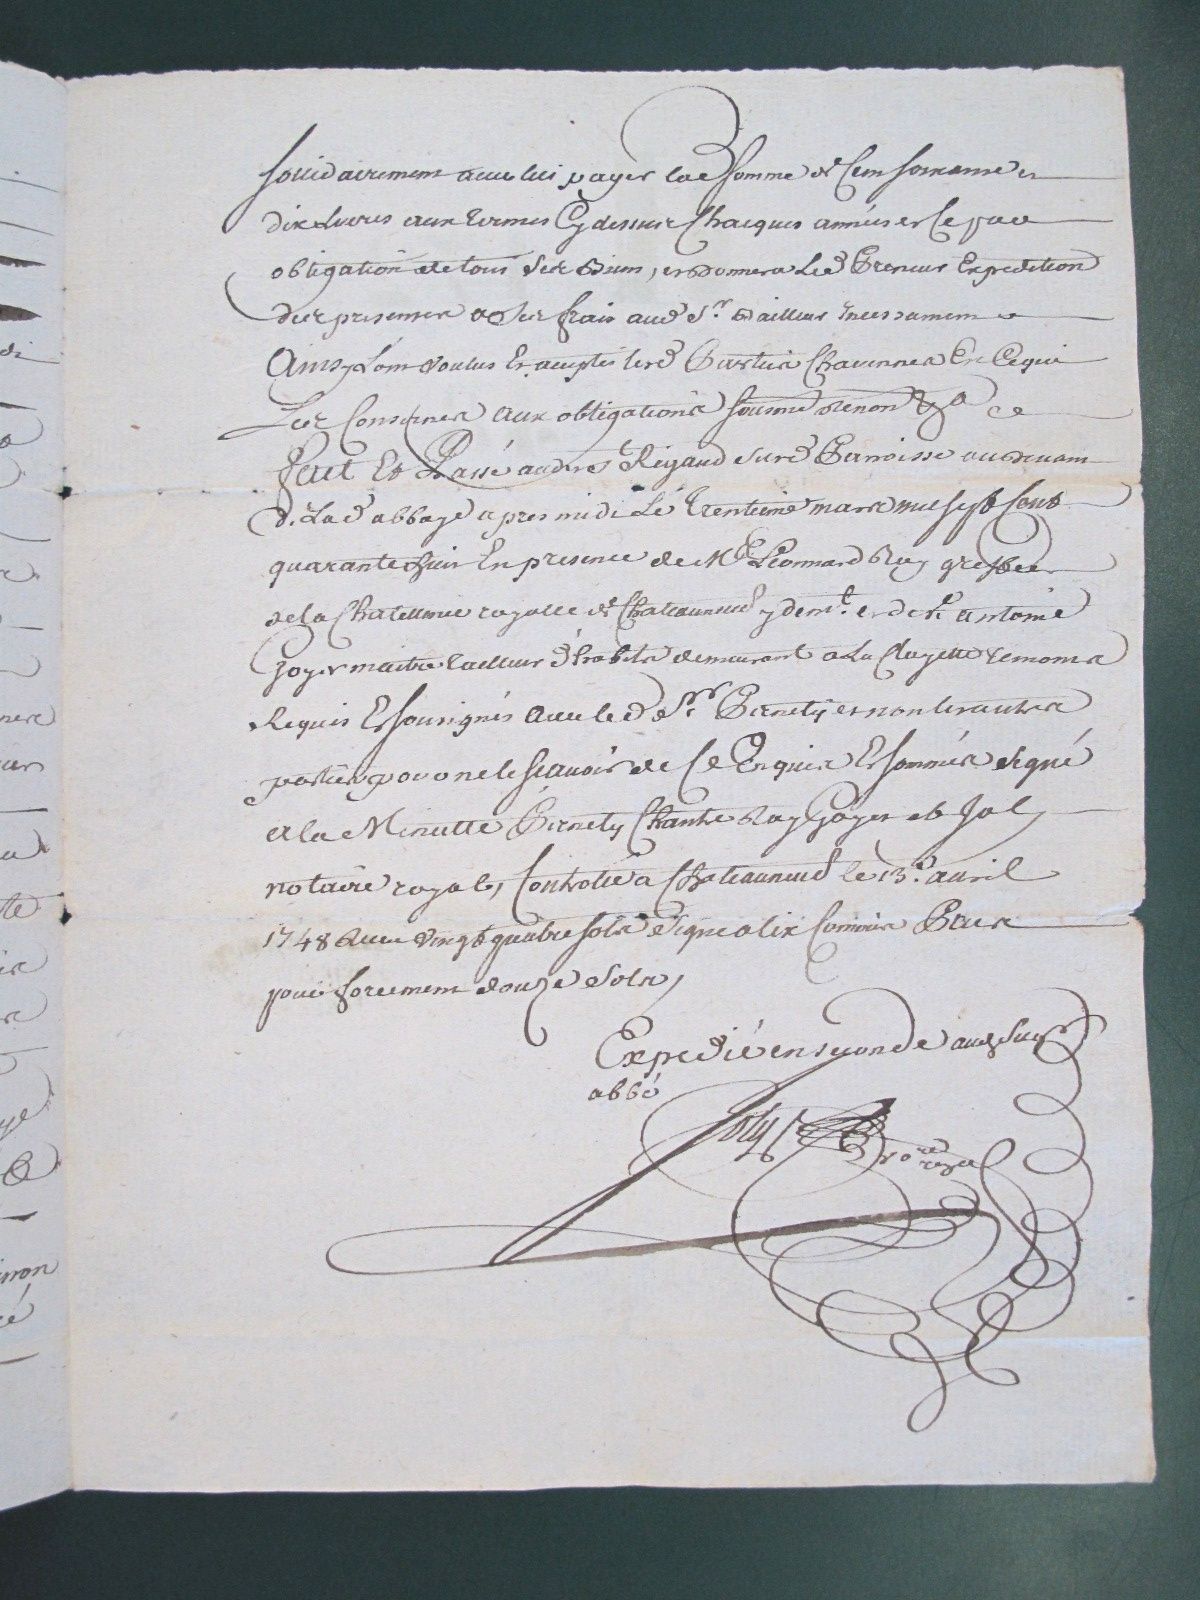 sollidairement avec lui payer lad somme de Cent soixante et
dix Livres aux termes Cy dessus Chacques années et Ce par
obligation de tous ses Biens, et donnera Led Preneur Expedition
des presentes a ses frais aud Sr Bailleur incessament
Ainsy L'ont voulus Et acceptés lesd Parties Chacunnes En Ce qui
Les Conserne aux obligations soumi renon
Fait Et Passé au de St Rigaud sure Parroisse au devant
de Lad abbaye apres midi Le trentieme mars mil sept Cent
quarante huit En presence de Me Leonnard Ruy greffier
de la Chatellenie royalle de Chateauneuf y demt et de Sr antoine
Goyer maitre tailleur d'habits demeurant a La Clayette temoins
Requis Et sousignés avec led Sr Pernety et non les autres
parties pour ne le scavoir de Ce Enquis Et sommés signé
a la Minutte Pernety Chantre Ruy Goyer et Joly
notaire royal, Controllé a Chateauneuf le 13e avril
1748 Recu vingt quatre sols signe alix Commis Plus
pour forcement douze sols,
Expedié en seconde aud Sieur
abbé
Joly
nore royal
mon